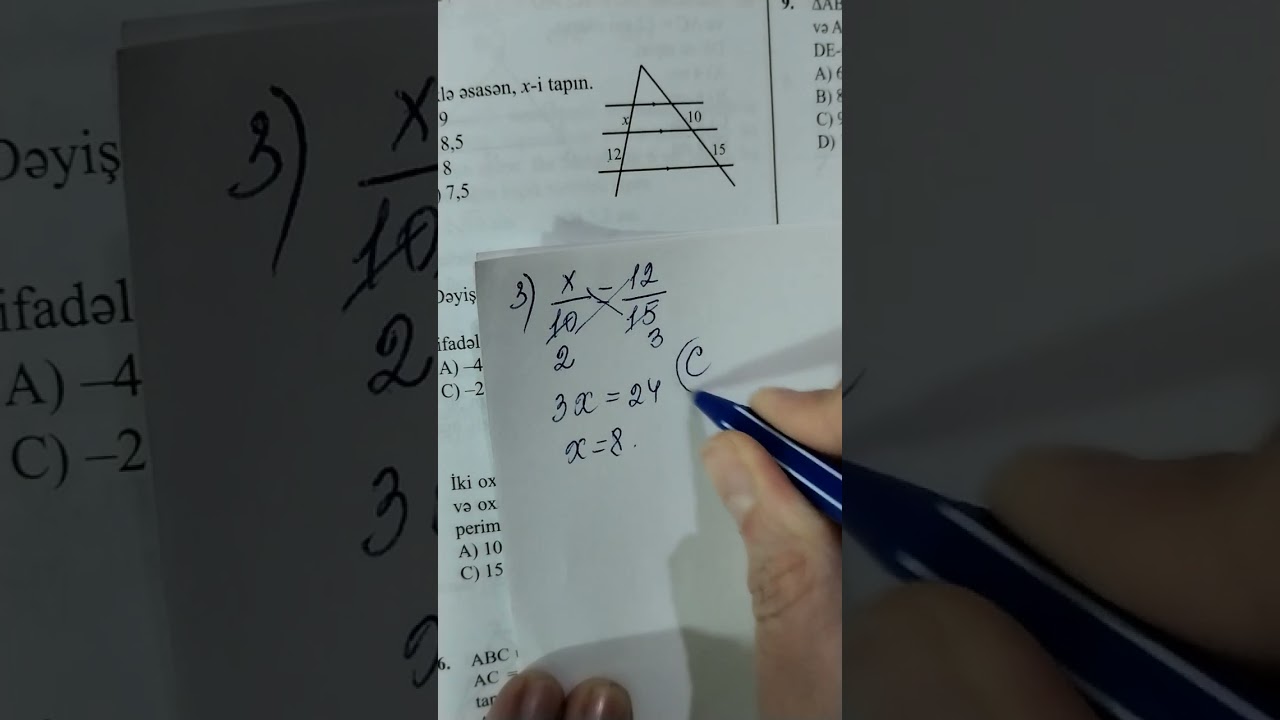 9. ΔAB
və A
DE-
A) 6
B) 8
C) 9
D)
lə əsasən, x-i tapın.
9
8,5
8
) 7,5
x
10
12
15
Dəyiş
ifadəl
A) –4
C) –2
3) x/10 = 12/15
2 3
3x = 24
x = 8.
C
İki ox
və ox
perim
A) 10
C) 15
6. ABC
AC =
tar
3) x
10
2
3
Dəyiş
ifadəl
A) –4
C) –2